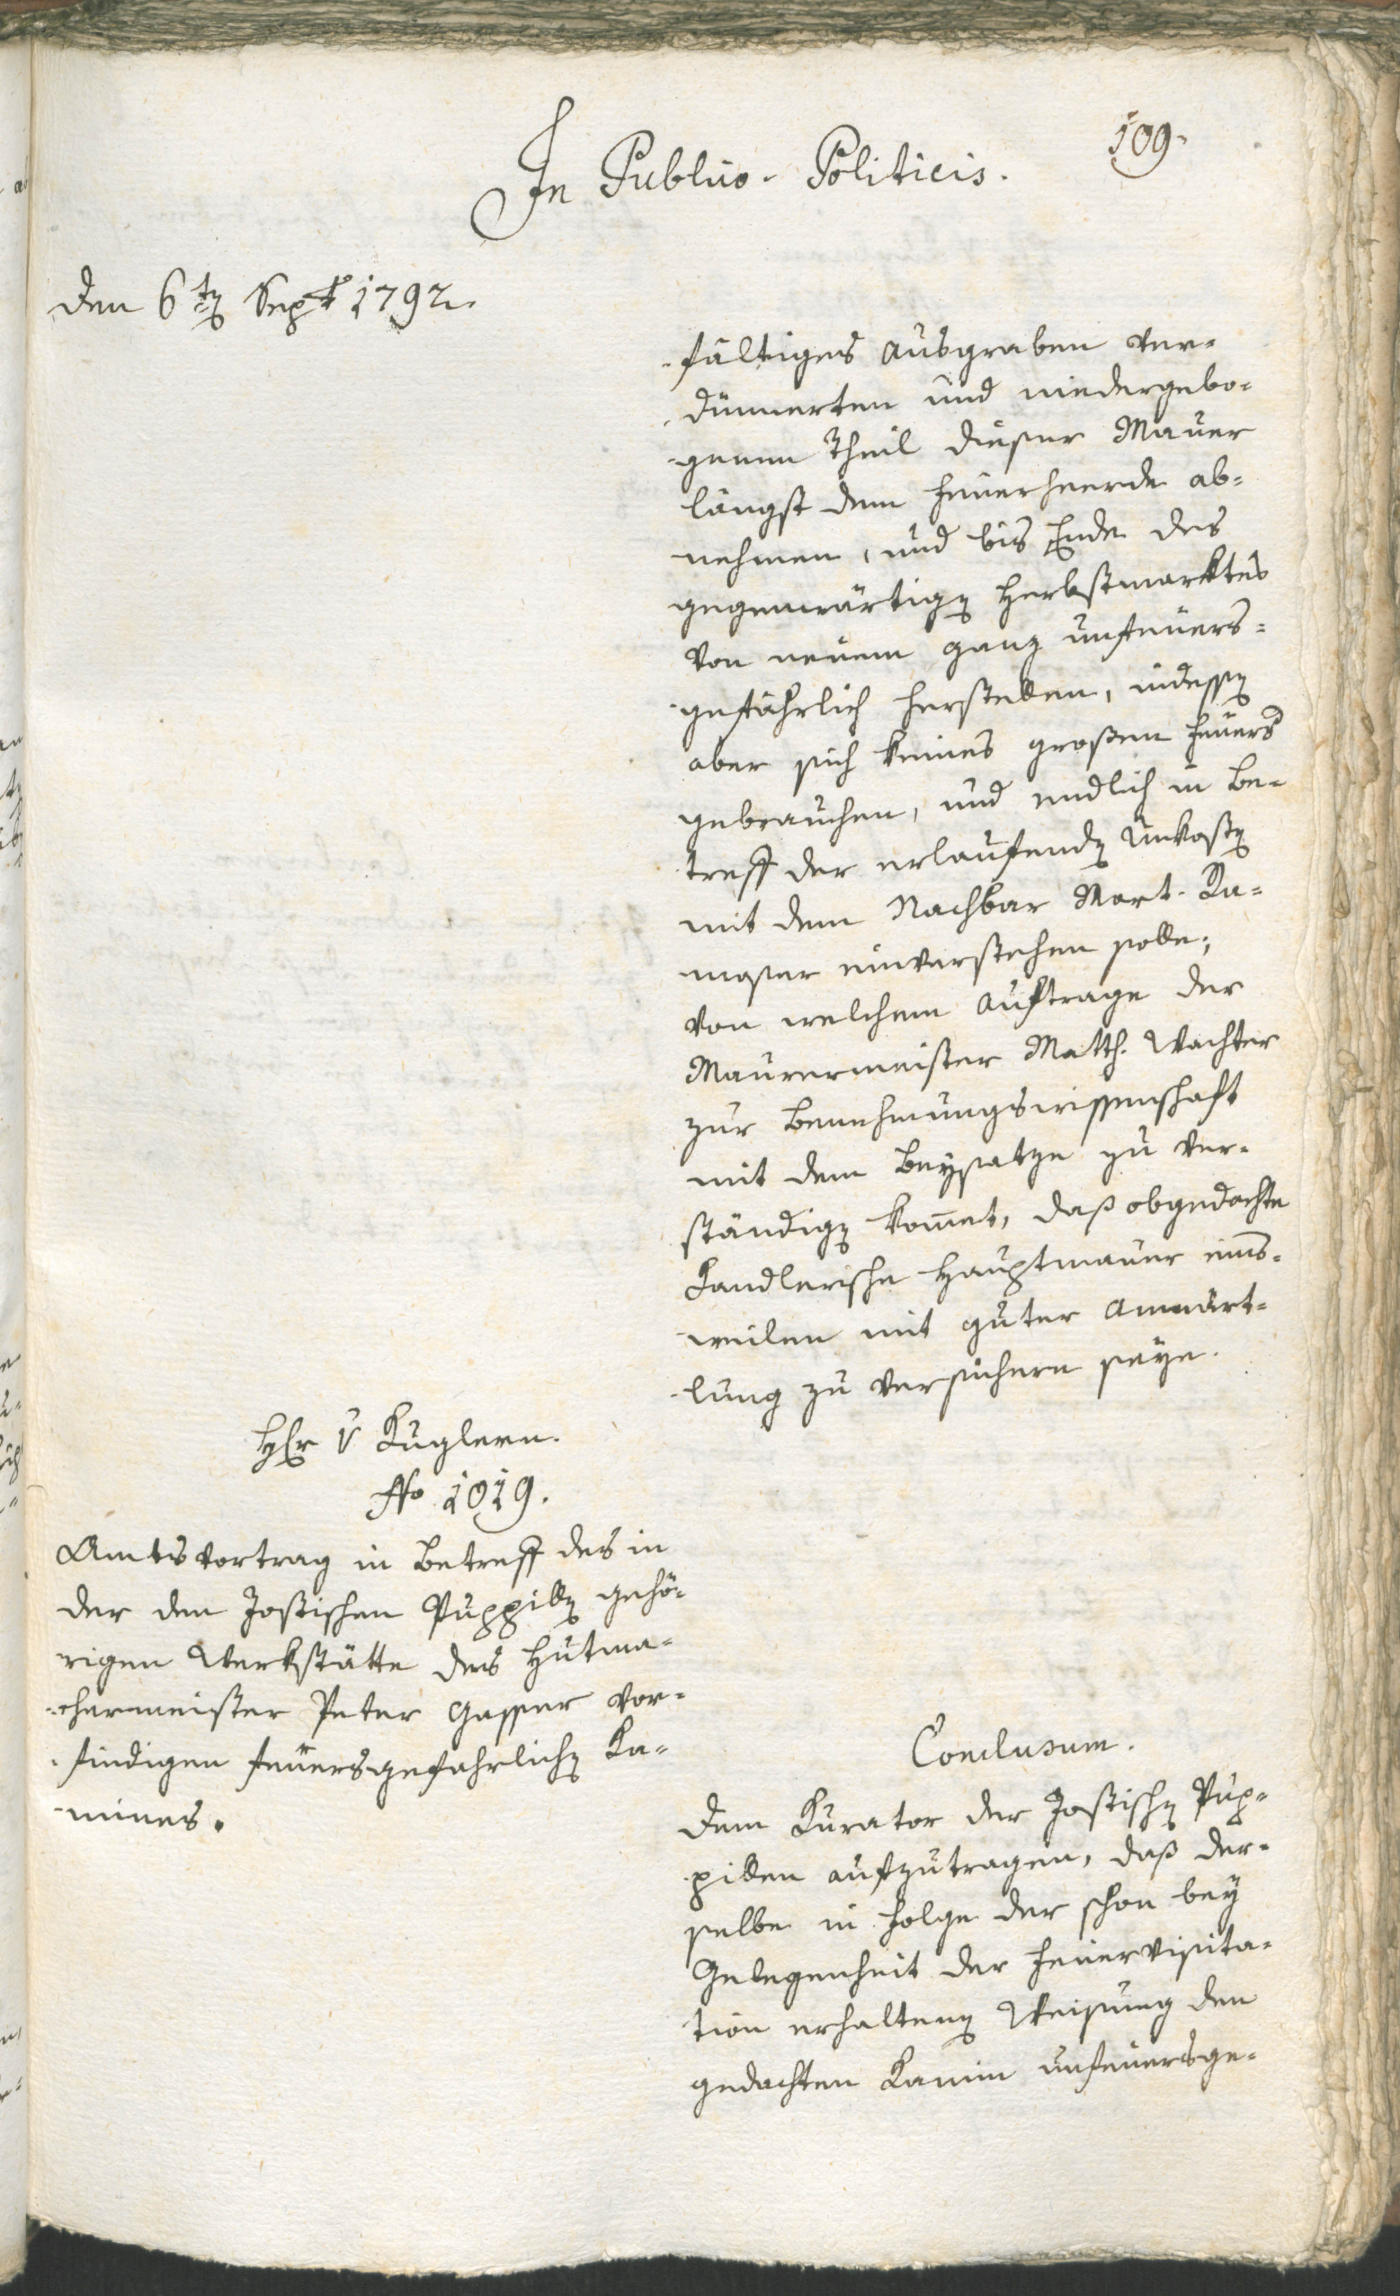 In Publico-Politicis.
109.
Den 6ten Sept 1792.
fältiges ausgraben ver-
dünnerten und niedergebo-
genen Theil dieser Mauer
längst dem Feuerheerde ab-
nehmen, und bis Ende des
gegenwärtigen Herbstmarktes
von neuem ganz unfeuers-
gefährlich herstellen, indessen
aber sich keines großen Feuers
gebrauchen, und endlich in Be-
treff der erlaufenden Unkosten
mit dem Nachbar Mart. Ra-
moser einverstehen solle;
von welchem Auftrage der
Maurermeister Matth. Wachter
zur Benehmungswissenschaft
mit dem Beysatze zu ver-
ständigen kommt, daß obgedachte
Kandlerische Hauptmauer eins-
weilen mit guter
zu versichern seye.
Hr v Kuglern.
No 1019.
Amtsvortrag in Betreff des in
der den Jostischen Puppillen gehö-
rigen Werkstätte des Hutma-
chermeister Peter Gasser vor-
findigen feuersgefährlichen Ka-
mines.
Conclusum.
Dem Kurator der Jostischen Pup-
pillen aufzutragen, daß der-
selbe in Folge der schon bey
Gelegenheit der Feuervisita-
tion erhaltenen Weisung den
gedachten Kamin unfeuersge-